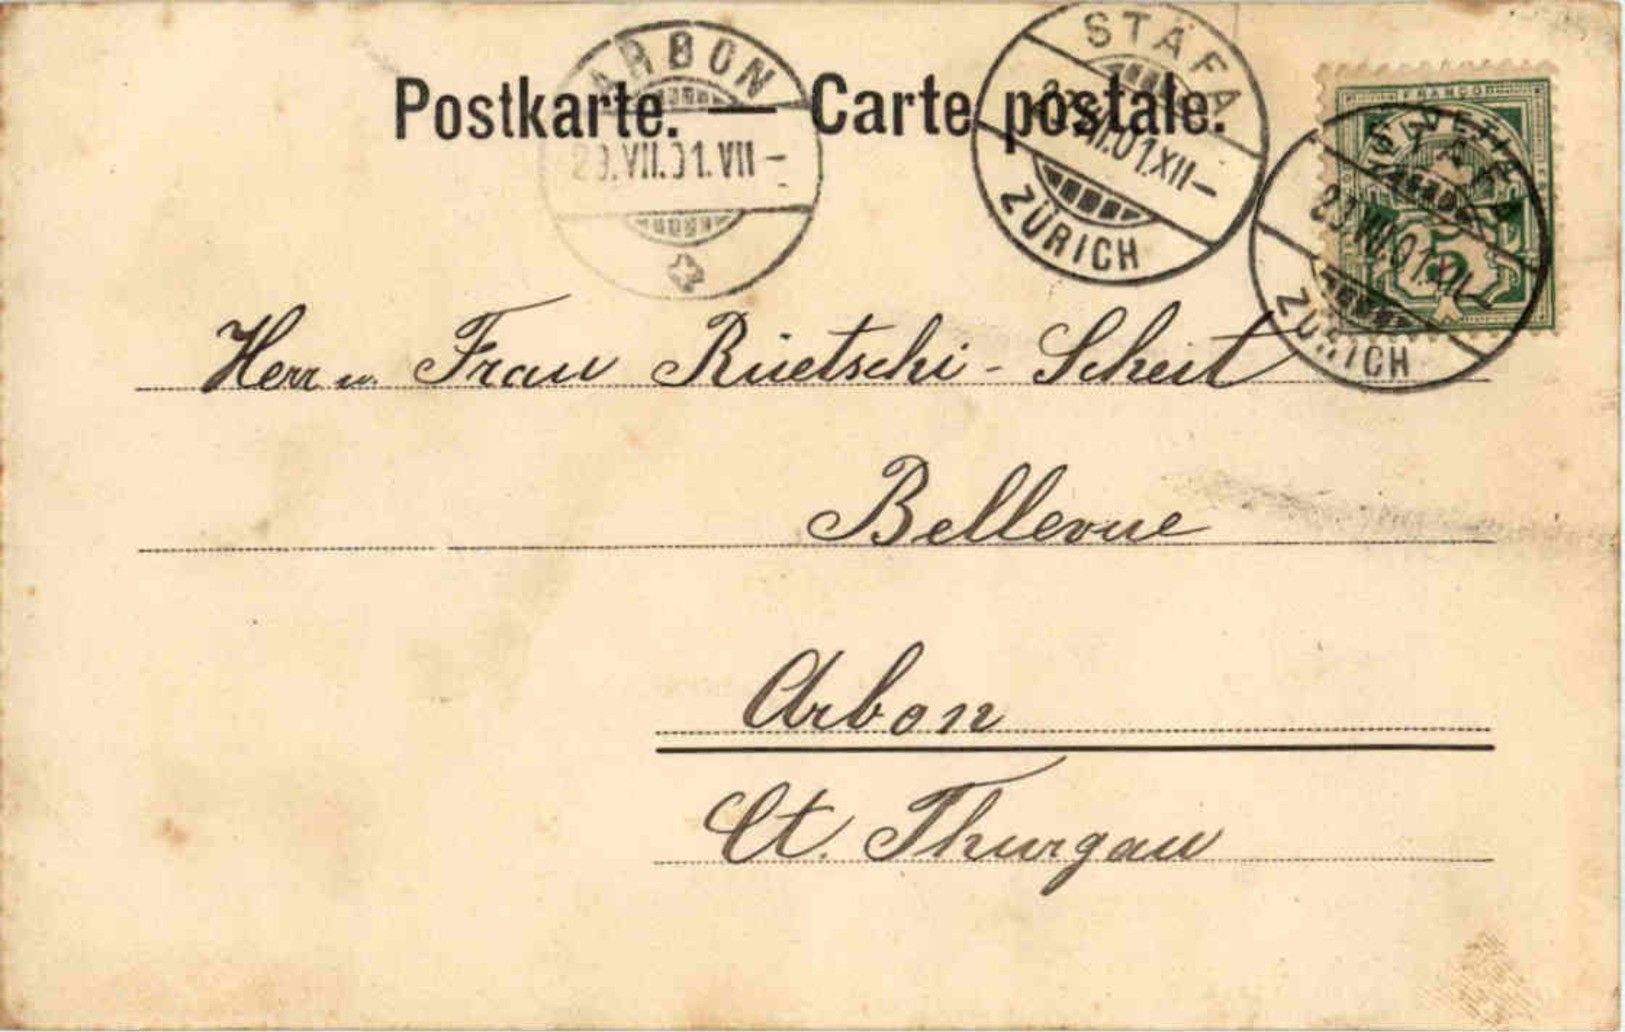 Postkarte. — Carte postale.
ARBON
VII.01.VII–
STÄFA
01.XII–
ZÜRICH
FRANCO
5
STÄFA
VII.01.XII–
ZÜRICH
Herr u. Frau Rüetschi - Scheit
Bellevue
Arbon
Ct. Thurgau